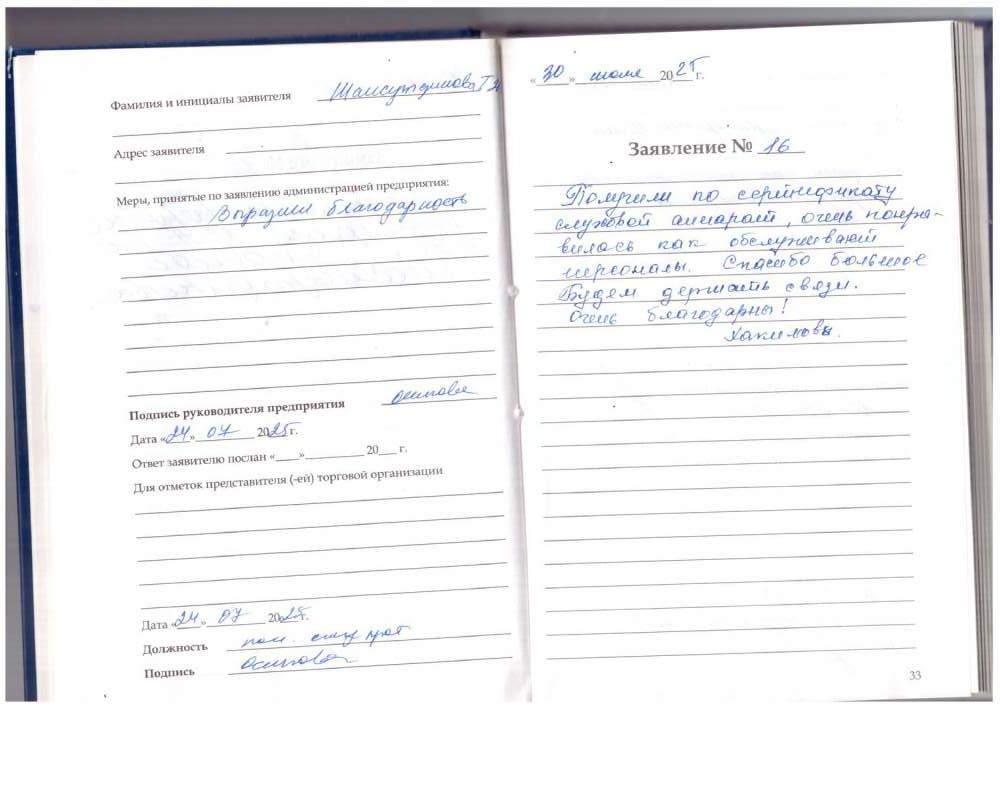 Фамилия и инициалы заявителя
Адрес заявителя
Меры, принятые по заявлению администрацией предприятия:
Выразили благодарность
Подпись руководителя предприятия Осипова
Дата «24» 07 2025г.
Ответ заявителю послан «___»_________ 20___ г.
Для отметок представителя (-ей) торговой организации
Дата «24» 07 2025г.
Должность пом.
Подпись Осипова
«30» июля 2025г.
Заявление № 16
Получили по сертификату
слуховой аппарат, очень понра-
вилось как обслуживают
персоналы. Спасибо большое
Будем держать связи.
Очень благодарны!
Хакимовы.
33